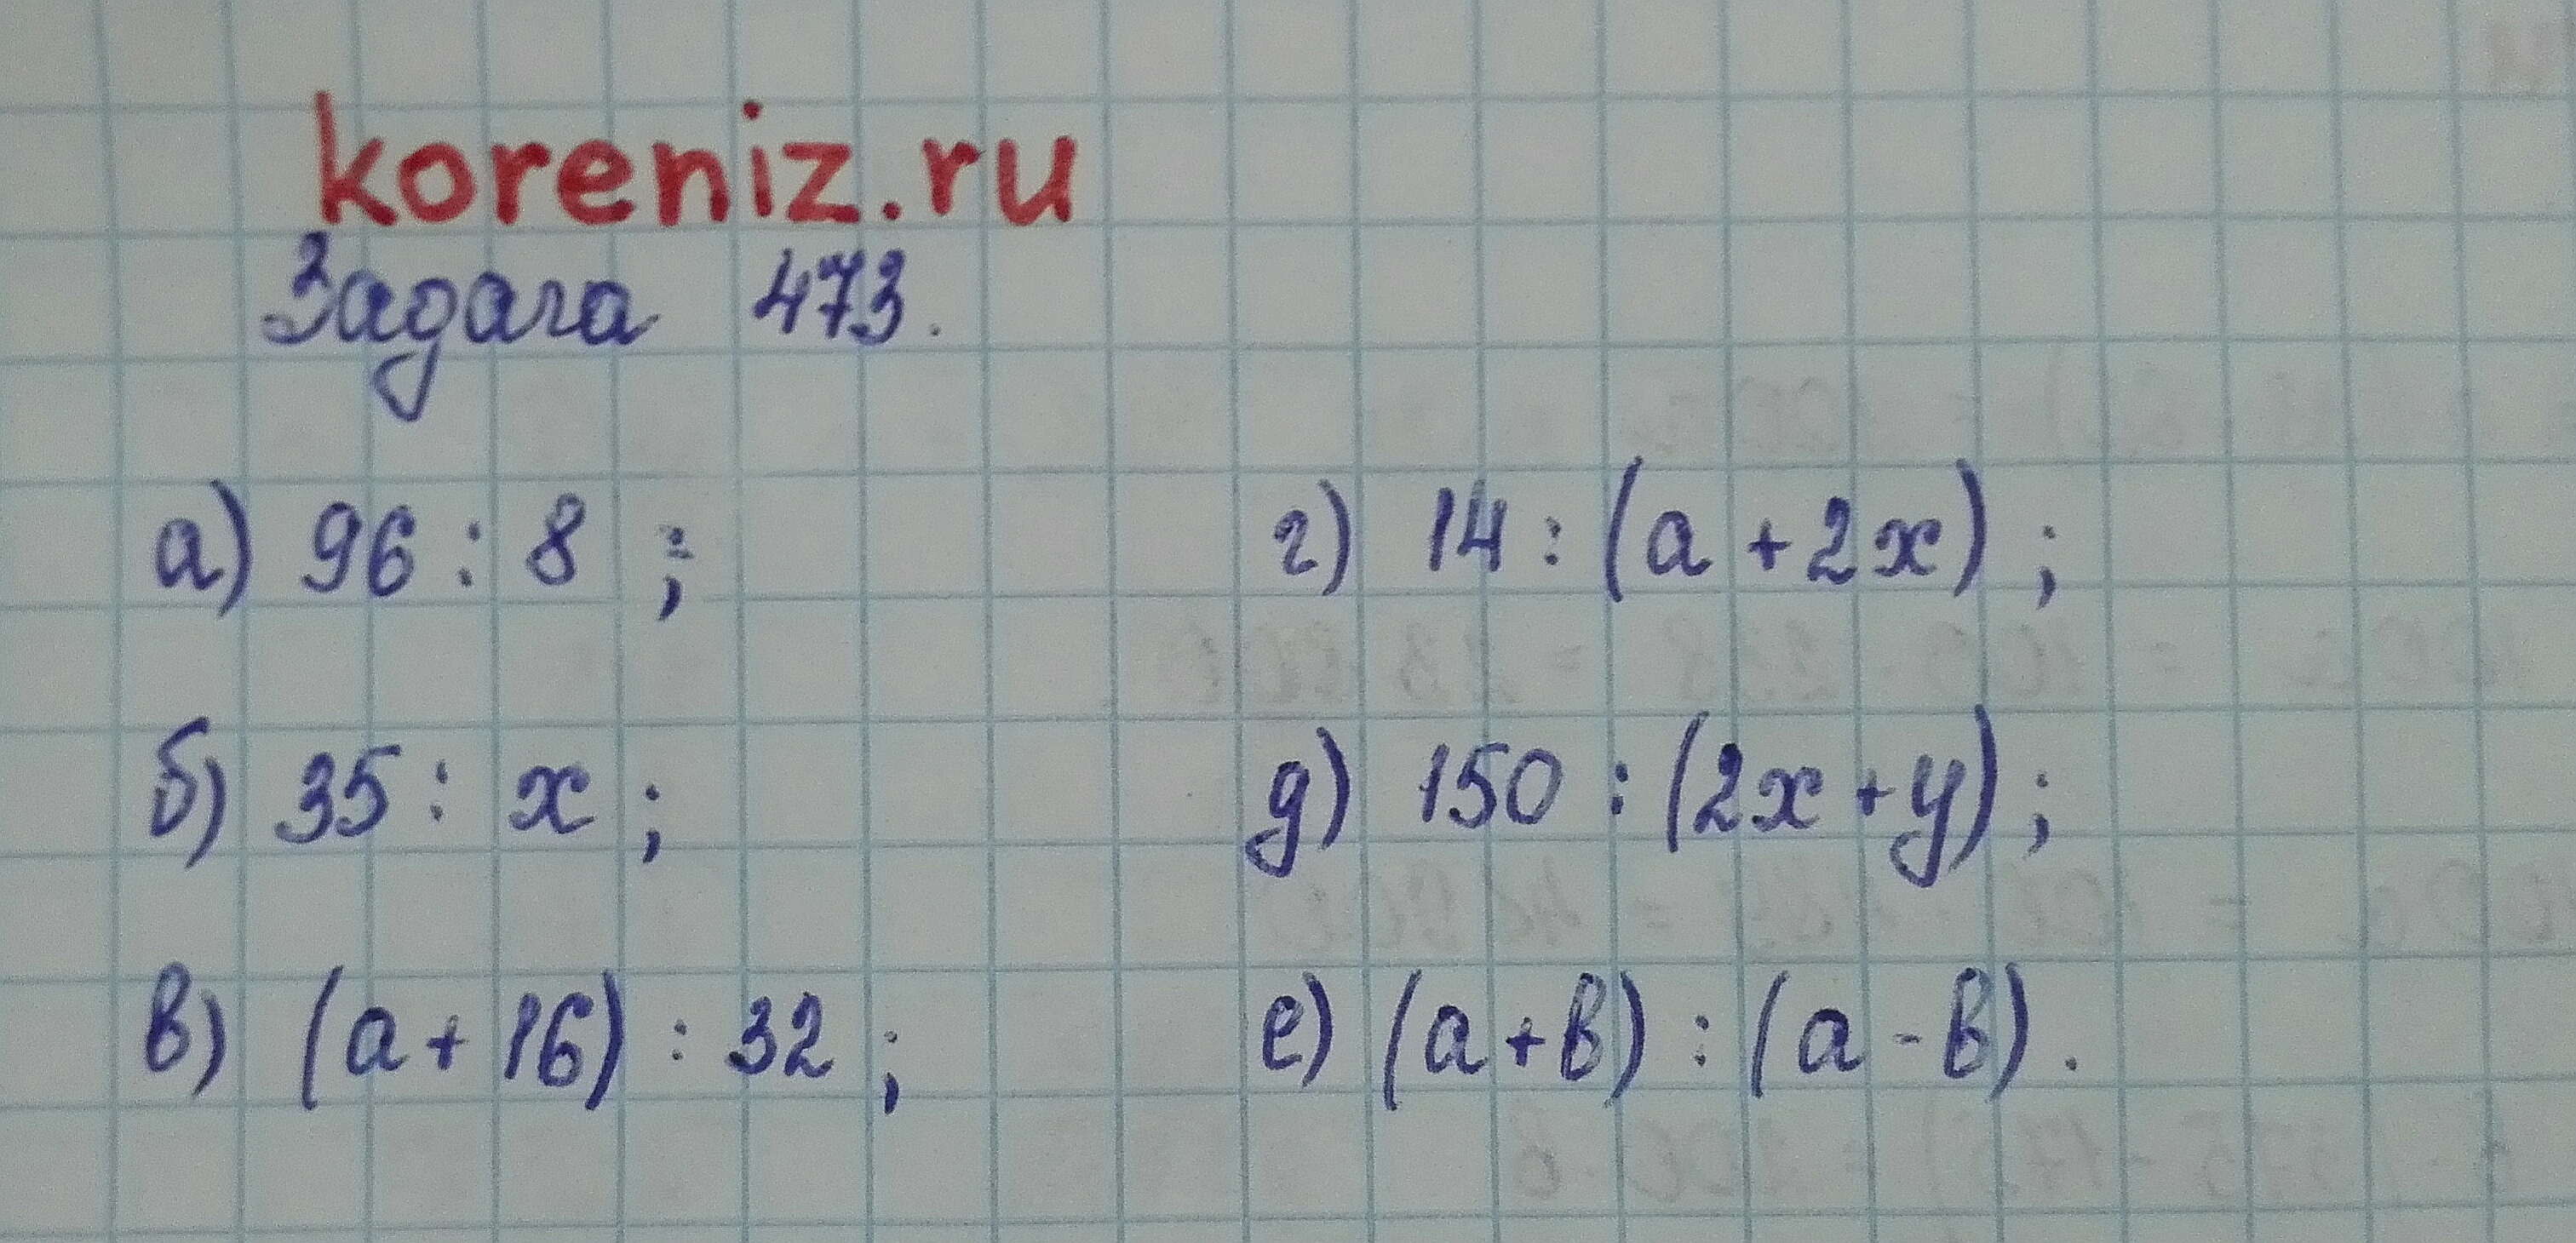 koreniz.ru
Задача 473.
а) 96 : 8 ;
б) 35 : x ;
в) (a + 16) : 32 ;
г) 14 : (a + 2x) ;
д) 150 : (2x + y) ;
е) (a + b) : (a - b) .